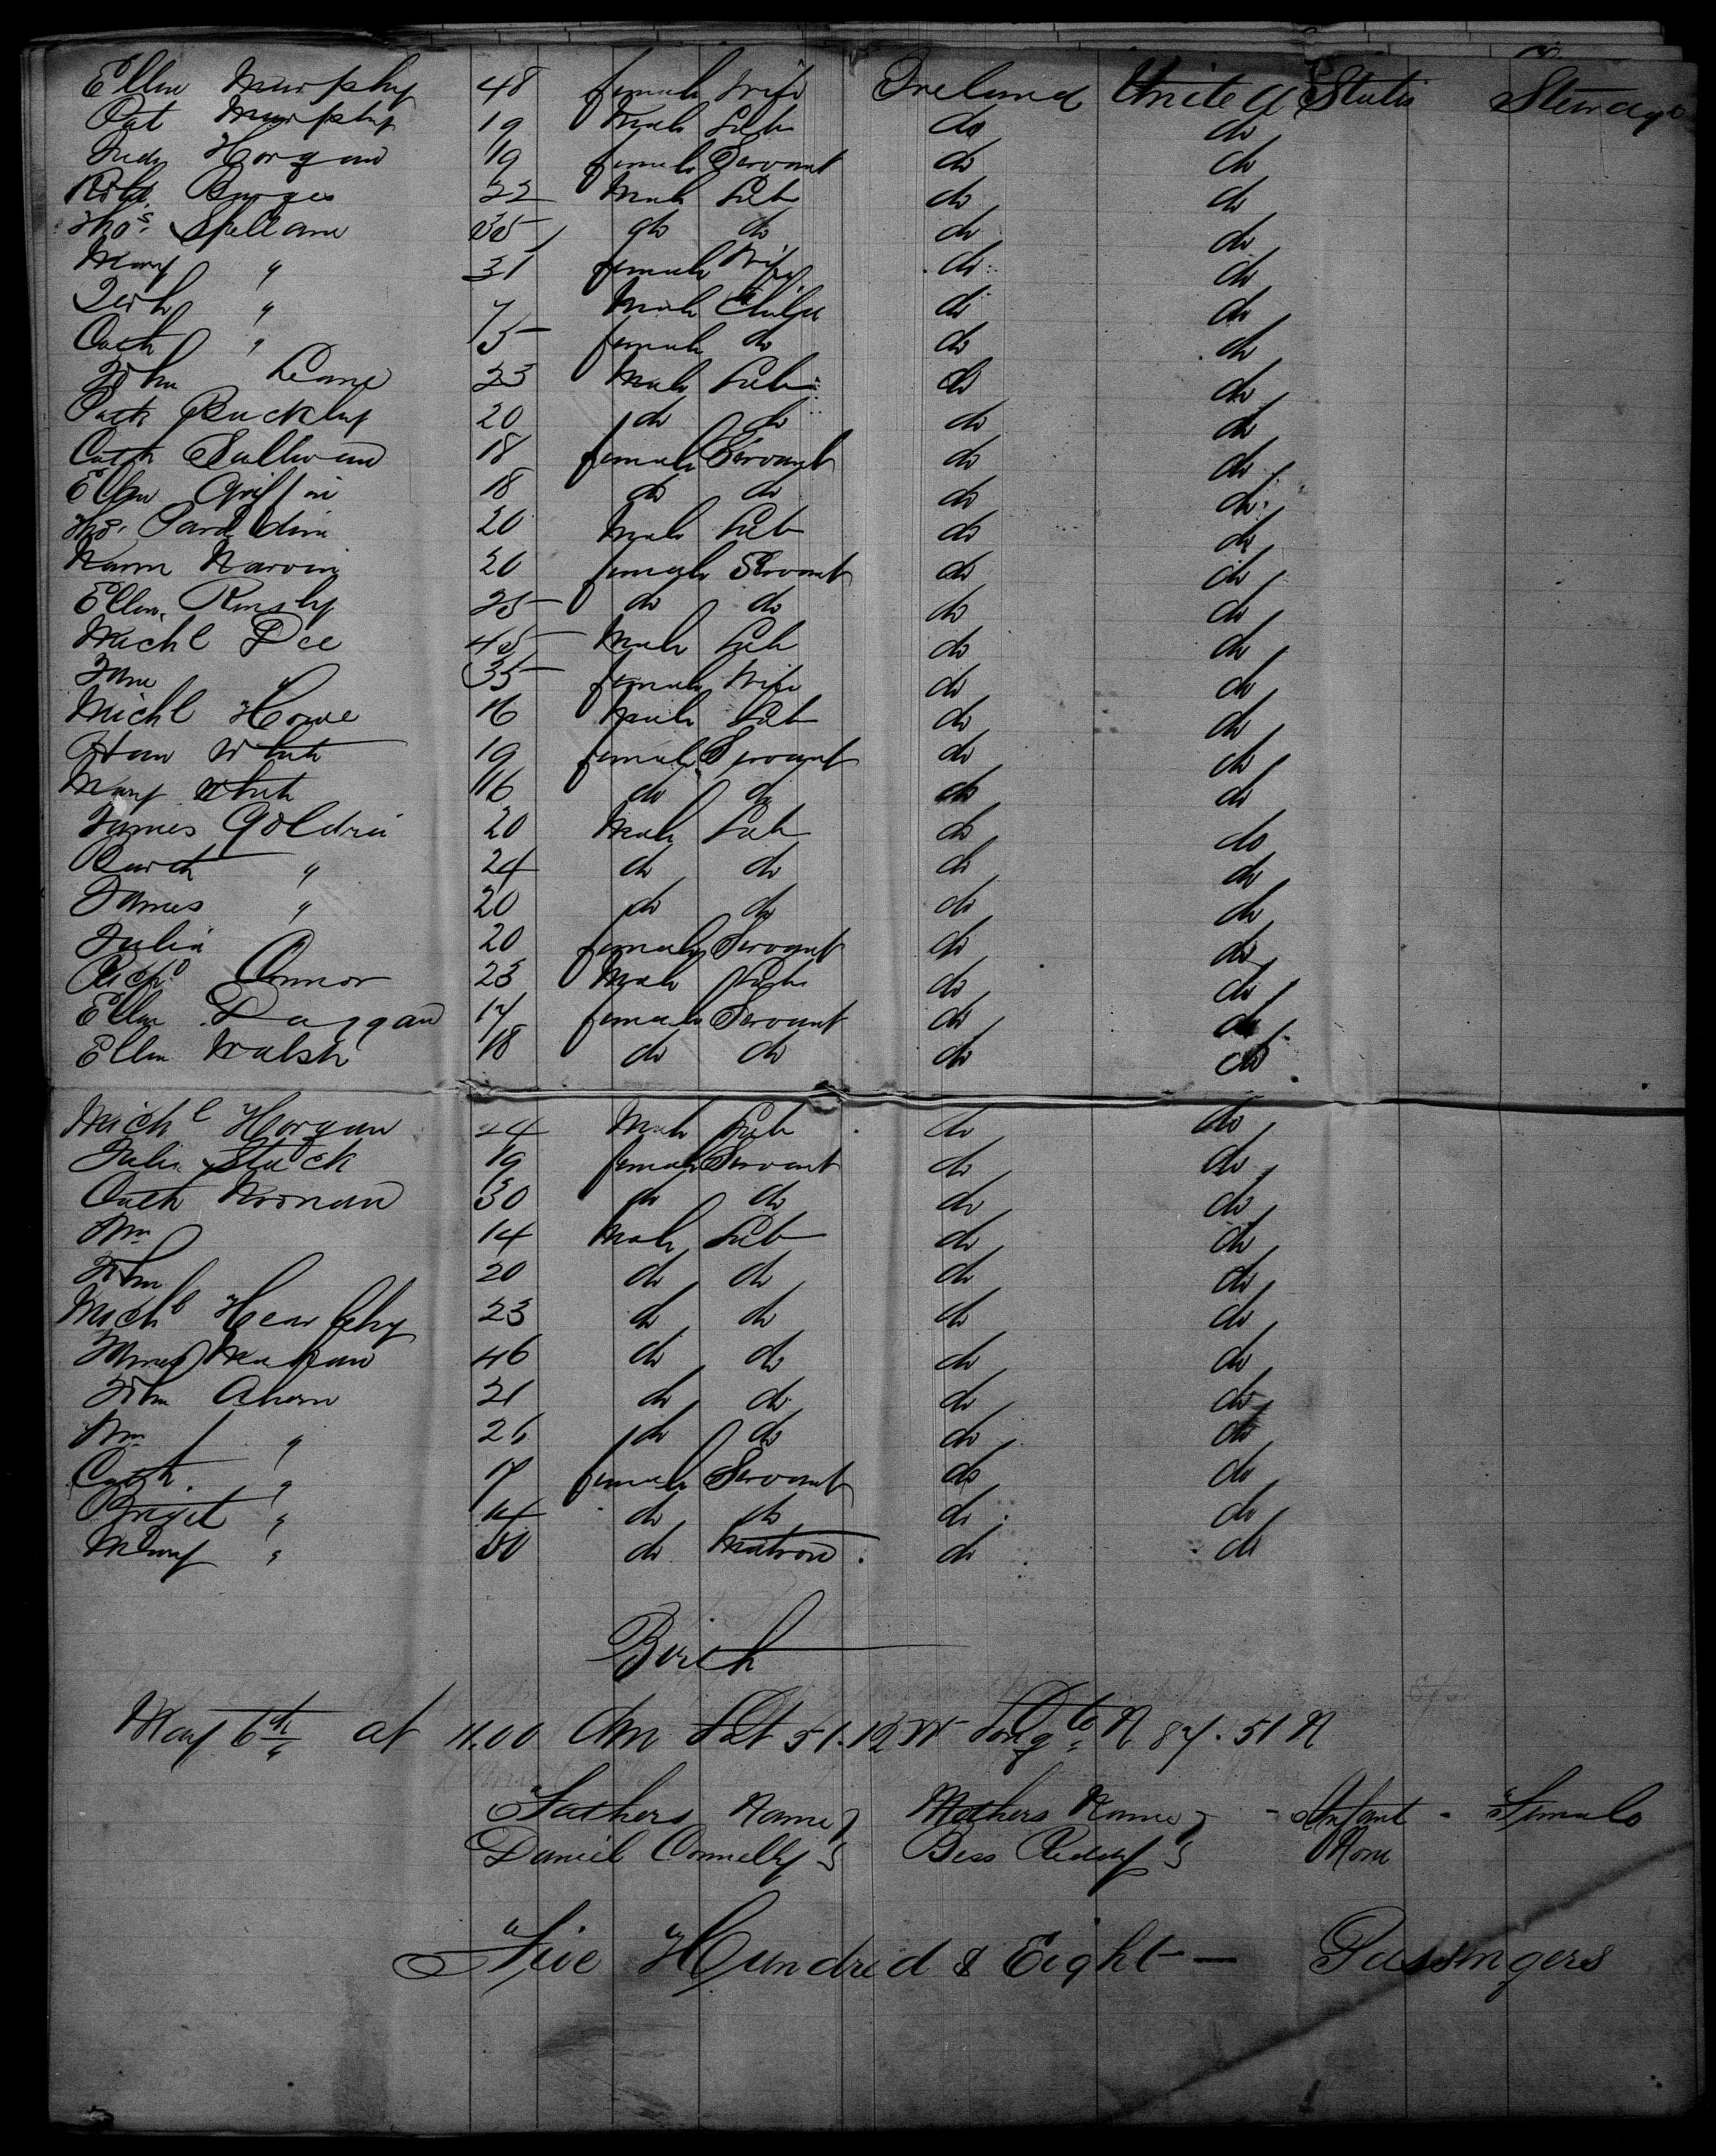 Ellen Murphy 48 female Wife Ireland United States Steerage
Pat Murphy 19 Male Lab do do
Judy Horgan 19 female Servant do do
Robt. Burges 22 Male Lab do do
Thos. Spellane 35 do do do do
Mary " 31 female Wife do do
Jerh " 7 Male Child do do
Cath " 5 female do do do
John Leane 23 Male Lab do do
Patk Buckley 20 do do do do
Cath Sullivan 18 female Servant do do
Ellen Griffin 18 do do do do
Thos. 20 Male Lab do do
20 female Servant do do
Ellen 25 do do do do
Michl Dee 45 Male Lab do do
Jane " 35 female Wife do do
Michl Howe 16 Male Lab do do
Han White 19 female Servant do do
Mary White 16 do do do do
James Goldrin 20 Male Lab do do
" 24 do do do do
James " 20 do do do do
Julia 20 female Servant do do
Richd Connor 23 Male Lab do do
Ellen Duggan 17 female Servant do do
Ellen Walsh 18 do do do do
Michl Horgan 24 Male Lab do do
Julia Stack 19 female Servant do do
Cath Noonan 30 do do do do
Wm 14 Male Lab do do
John 20 do do do do
Michl Hearphy 23 do do do do
James 46 do do do do
John Ahern 21 do do do do
Wm " 26 do do do do
Cath. " 17 female Servant do do
Briget " 14 do do do do
Mary " 50 do Matron do do
Birth
May 6th at 11.00 Am Lat 51.12 N Longte 51
Fathers Name } Mothers Name } - Infant - Female
Daniel Connelly } Bess Reddy } Nora
Five Hundred & Eight — Passengers